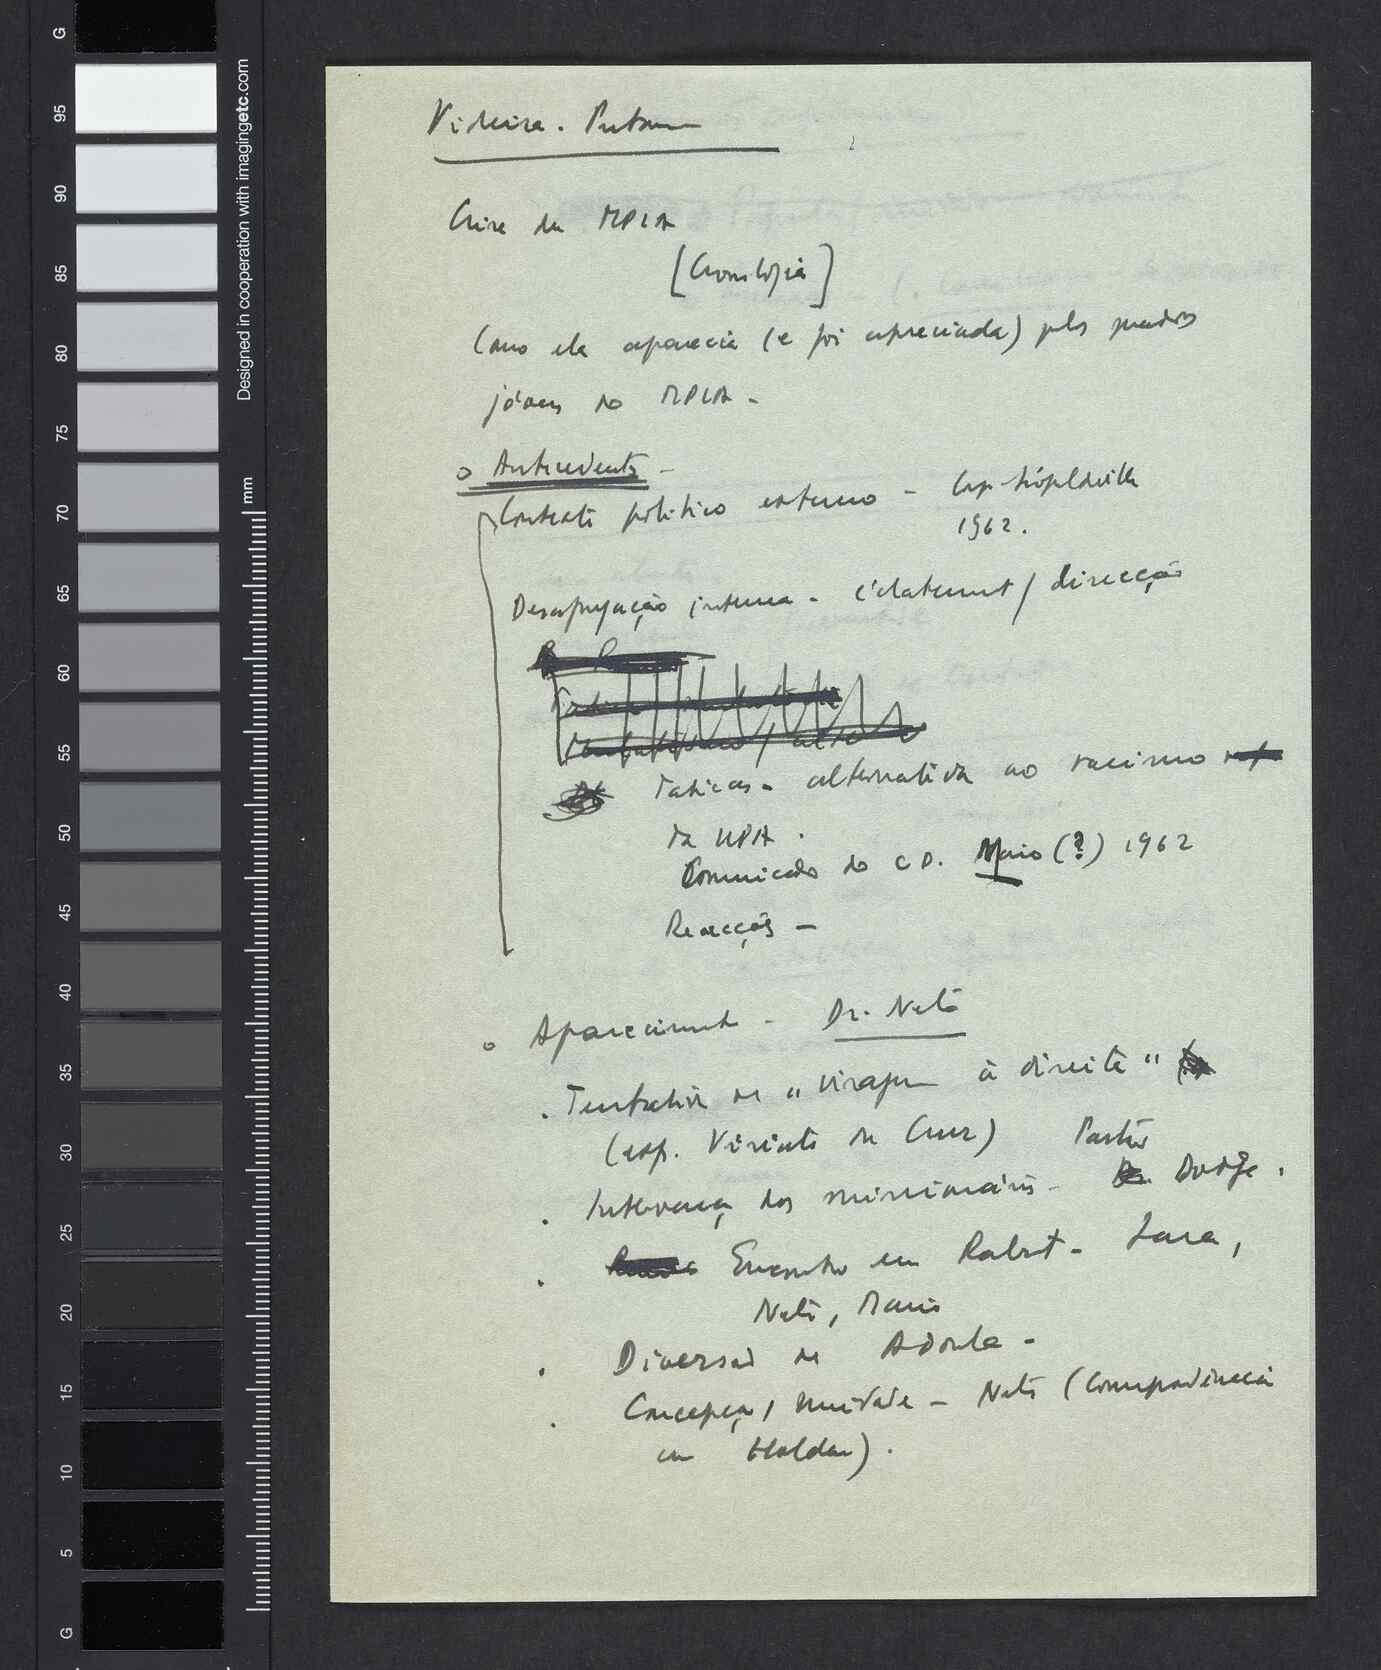 G
95
90
85
80
75
70
65
60
55
50
45
40
35
30
25
20
15
10
5
G
Designed in cooperation with imagingetc.com
mm
Videira.
Crise do MPLA
[Cronologia]
Como ela aparecia (e foi apreciada) pelos quadros
jóvens do MPLA -
o Antecedentes -
Contexto politico externo - Cap. Léopoldville
1962.
Desagregação interna - éclatement / direcção
Taticas - alternativa ao racismo
da UPA.
Comunicado do C D. Maio (?) 1962
Reacções -
o Aparecimento - Dr. Neto
. Tentativa de "viragem à direita"
(exp. Viriato da Cruz) Pastor
. Intervenção dos missionários - Dodge.
. Encontro em Rabat - Lara,
Neto, Mario
. Diversão de Adoula -
. Concepção / Unidade - Neto (correspondência
em Holden).